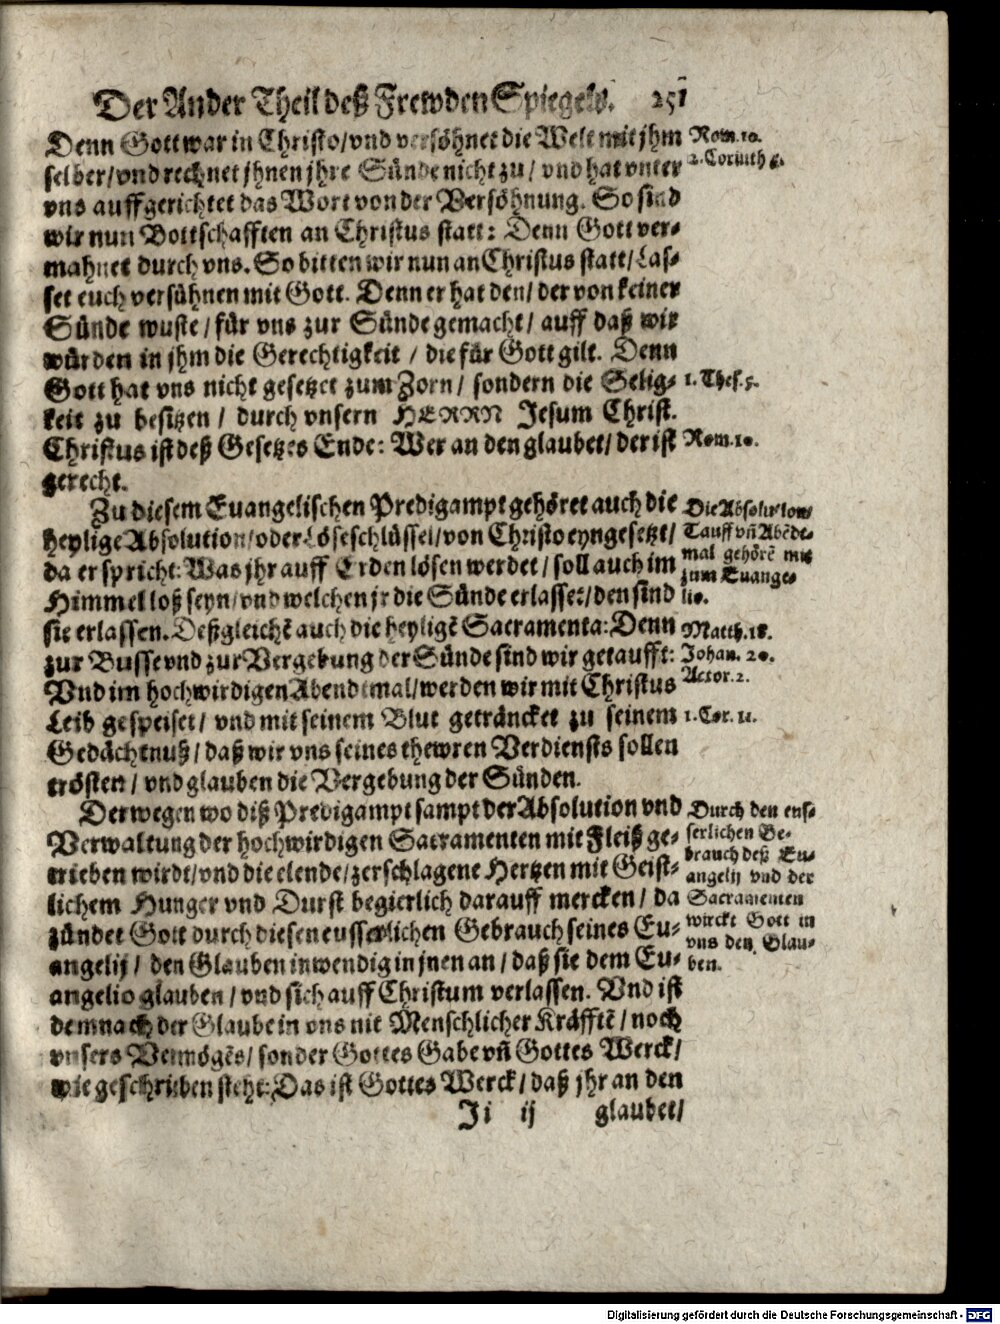 Der Ander Theil deß Frewden Spiegels. 251
Denn Gott war in Christo/ vnd versöhnet die Welt mit jhm
selber/ vnd rechnet jhnen jhre Sünde nicht zu/ vnd hat vnter
vns auffgerichtet das Wort von der Versöhnung. So sind
wir nun Bottschafften an Christus statt: Denn Gott ver-
mahnet durch vns. So bitten wir nun an Christus statt/ Las-
set euch versühnen mit Gott. Denn er hat den/ der von keiner
Sünde wuste/ für vns zur Sünde gemacht/ auff daß wir
würden in jhm die Gerechtigkeit/ die für Gott gilt. Denn
Gott hat vns nicht gesetzet zum Zorn/ sondern die Selig-
keit zu besitzen/ durch vnsern HERRN Jesum Christ.
Christus ist deß Gesetzes Ende: Wer an den glaubet/ der ist
gerecht.
Zu diesem Euangelischen Predigampt gehöret auch die
heylige Absolution/ oder Löseschlüssel/ von Christo eyngesetzt/
da er spricht: Was jhr auff Erden lösen werdet/ soll auch im
Himmel loß seyn/ vnd welchen jr die Sünde erlasset/ den sind
sie erlassen. Deßgleichē auch die heyligē Sacramenta: Denn
zur Busse vnd zur Vergebung der Sünde sind wir getaufft:
Vnd im hochwirdigen Abendtmal/ werden wir mit Christus
Leib gespeiset/ vnd mit seinem Blut geträncket zu seinem
Gedächtnuß/ daß wir vns seines thewren Verdiensts sollen
trösten/ vnd glauben die Vergebung der Sünden.
Derwegen wo diß Predigampt sampt der Absolution vnd
Verwaltung der hochwirdigen Sacramenten mit Fleiß ge-
trieben wirdt/ vnd die elende/ zerschlagene Hertzen mit Geist-
lichem Hunger vnd Durst begierlich darauff mercken/ da
zündet Gott durch diesen eusserlichen Gebrauch seines Eu-
angelij/ den Glauben inwendig in jnen an/ daß sie dem Eu-
angelio glauben/ vnd sich auff Christum verlassen. Vnd ist
demnach der Glaube in vns nit Menschlicher Kräfftē/ noch
vnsers Vermögēs/ sonder Gottes Gabe vñ Gottes Werck/
wie geschrieben steht: Das ist Gottes Werck/ daß jhr an den
Ji ij glaubet/
Rom. 10.
2. Corinth 5.
1. Thes. 5.
Rom. 10.
Die Absolution/
Tauff vñ Abēdt-
mal gehörē mit
zum Euange-
lio.
Matth. 18.
Johan. 20.
Actor. 2.
1. Cor. 11.
Durch den eus-
serlichen Ge-
brauch deß Eu-
angelij vnd der
Sacramenten
wirckt Gott in
vns den Glau-
ben.
Digitalisierung gefördert durch die Deutsche Forschungsgemeinschaft - DFG